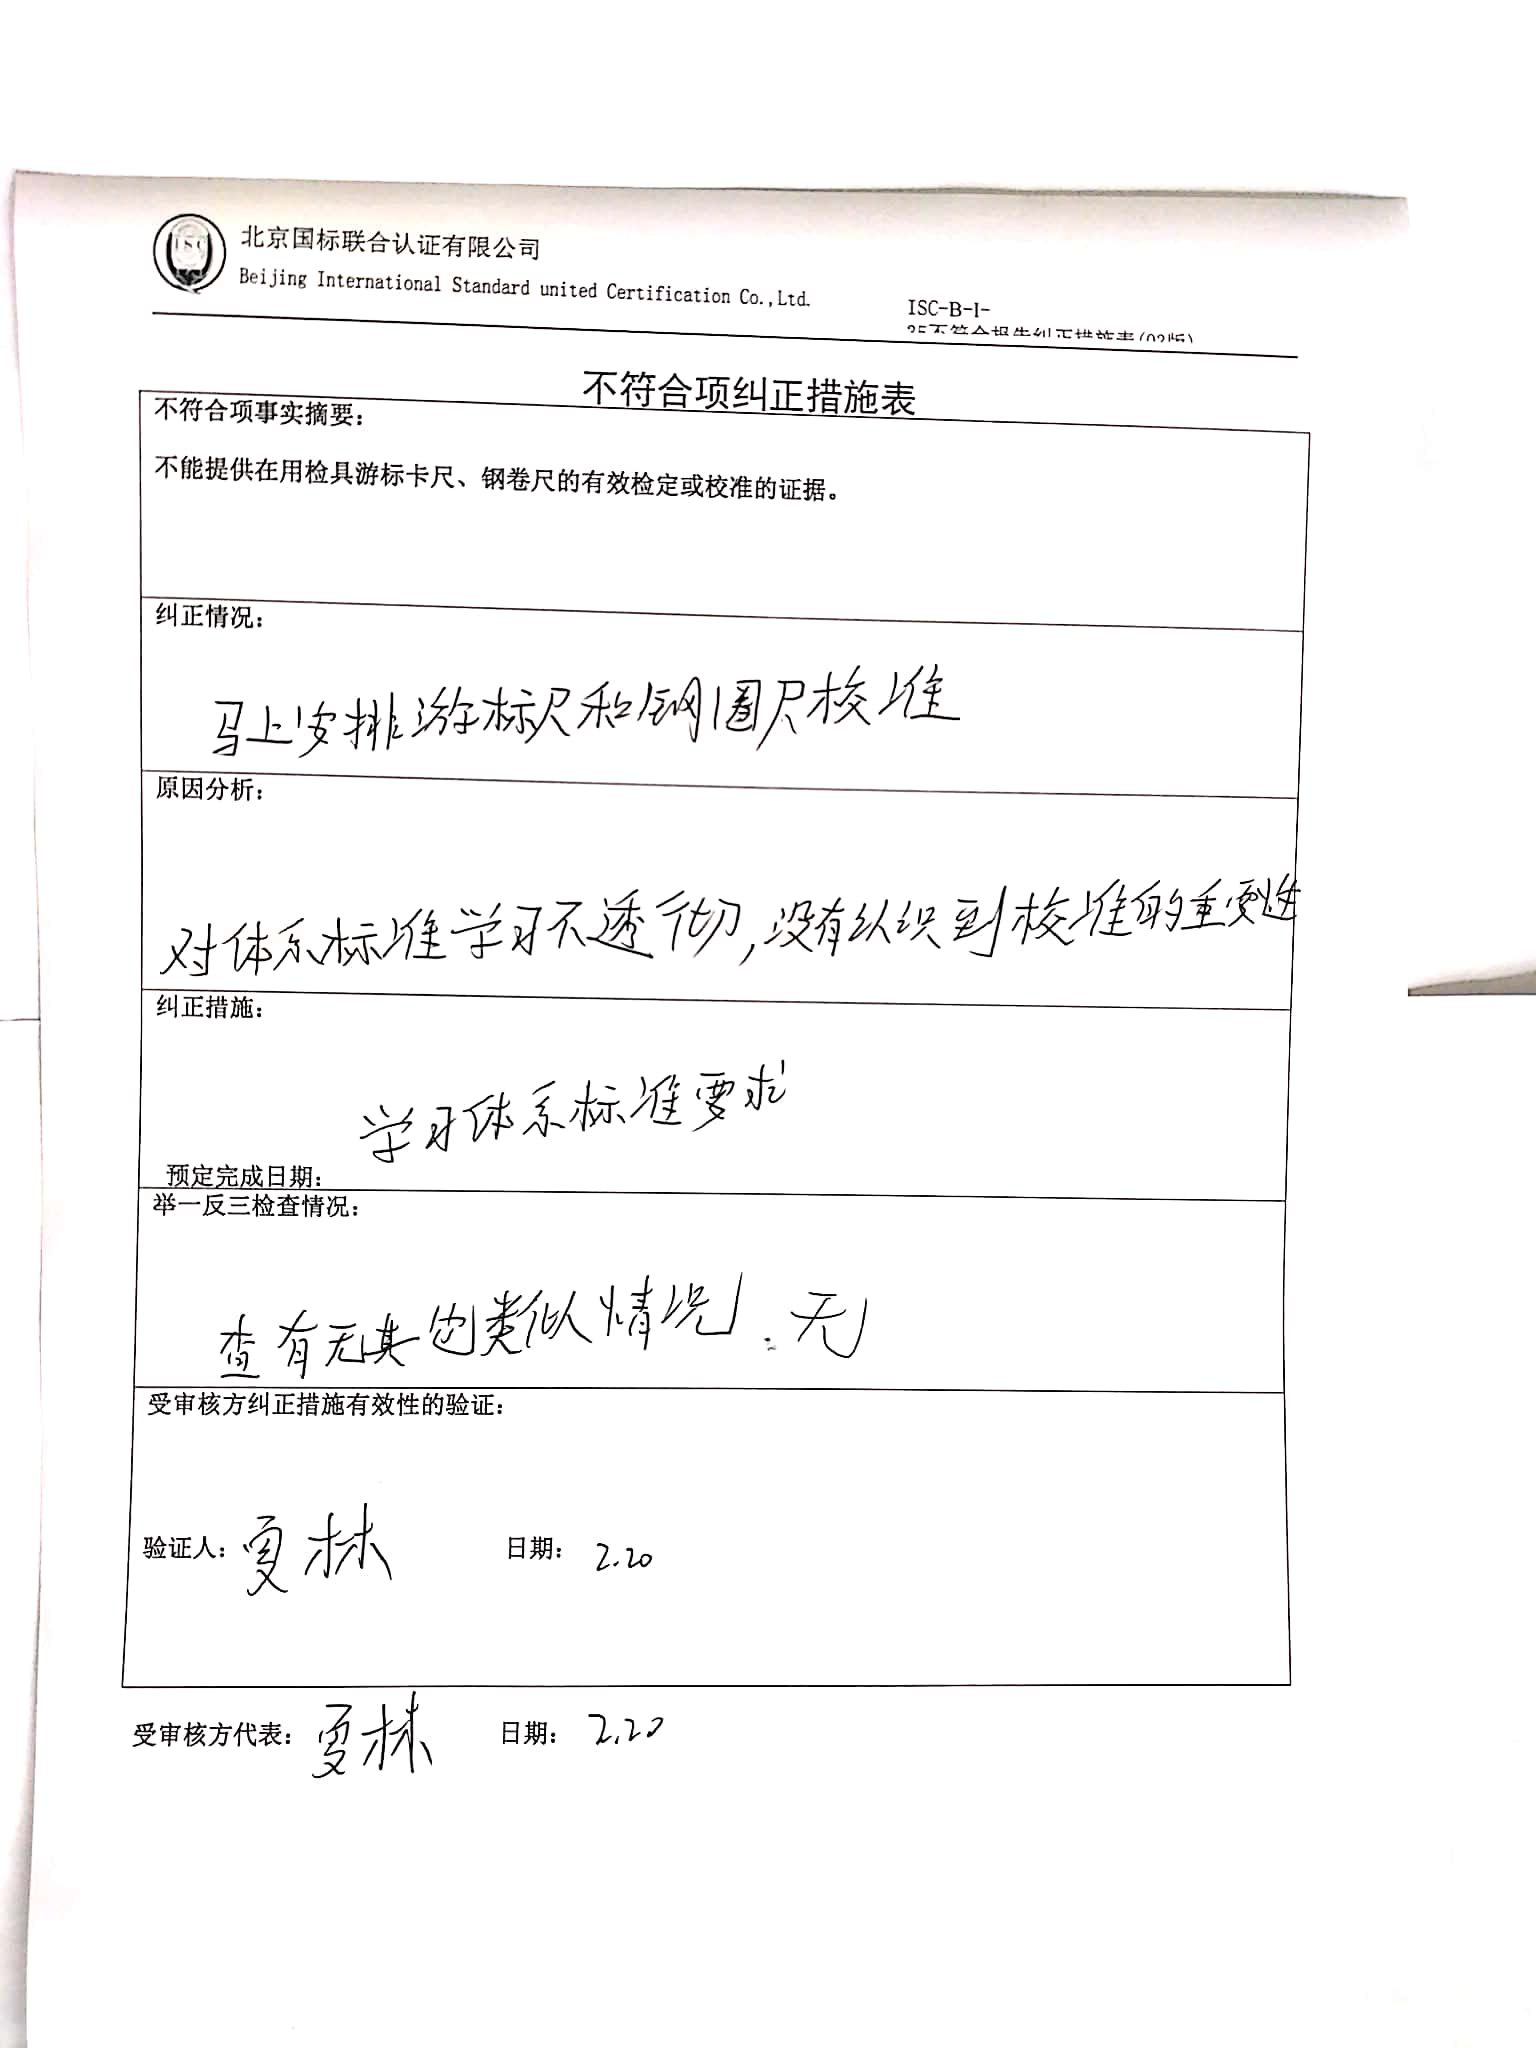 北京国标联合认证有限公司
Beijing International Standard united Certification Co.,Ltd.
ISC-B-I-
35不符合报告纠正措施表(02版)
不符合项纠正措施表
不符合项事实摘要：
不能提供在用检具游标卡尺、钢卷尺的有效检定或校准的证据。
纠正情况：
马上安排游标尺和钢圈尺校准
原因分析：
对体系标准学习不透彻，没有认识到校准的重要性
纠正措施：
学习体系标准要求
预定完成日期：
举一反三检查情况：
查有无其他类似情况．无
受审核方纠正措施有效性的验证：
验证人：夏林 日期： 2.20
受审核方代表：夏林 日期： 2.20